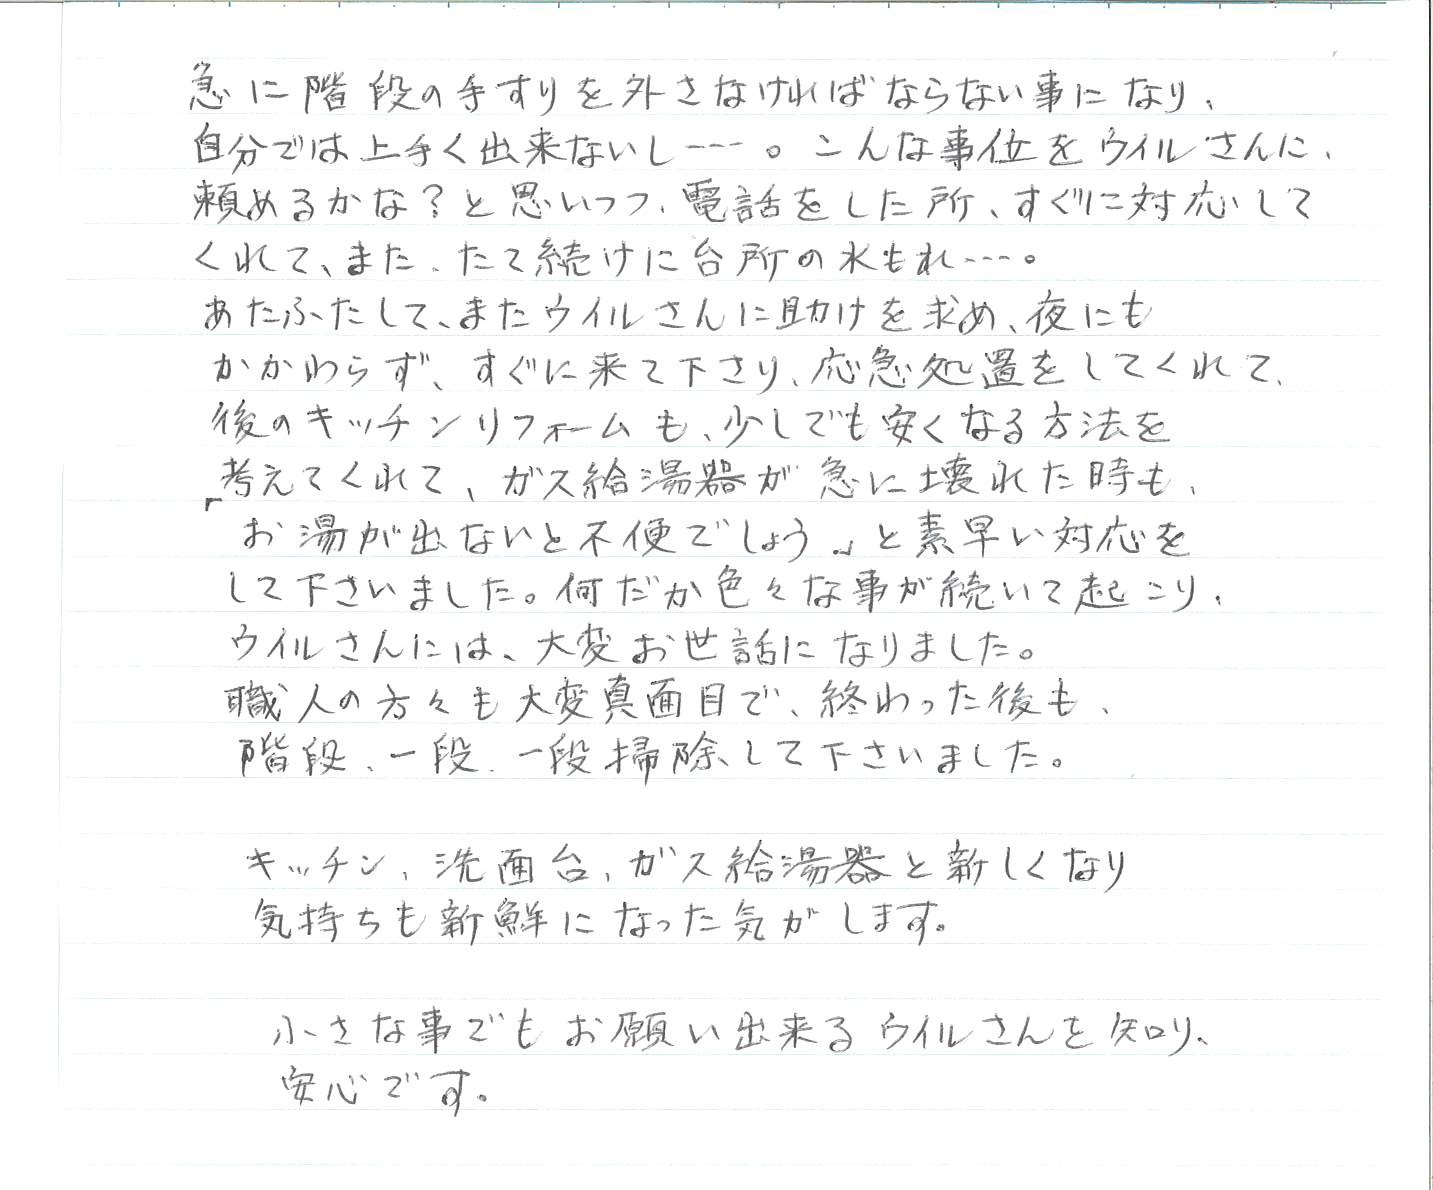 急に階段の手すりを外さなければならない事になり、
自分では上手く出来ないし----。こんな事位をウイルさんに、
頼めるかな?と思いつつ、電話をした所、すぐに対応して
くれて、また、たて続けに台所の水もれ----。
あたふたして、またウイルさんに助けを求め、夜にも
かかわらず、すぐに来て下さり、応急処置をしてくれて、
後のキッチンリフォームも、少しでも安くなる方法を
考えてくれて、ガス給湯器が急に壊れた時も、
「お湯が出ないと不便でしょう。」と素早い対応を
して下さいました。何だか色々な事が続いて起こり、
ウイルさんには、大変お世話になりました。
職人の方々も大変真面目で、終わった後も、
階段、一段、一段掃除して下さいました。
キッチン、洗面台、ガス給湯器と新しくなり
気持ちも新鮮になった気がします。
小さな事でもお願い出来るウイルさんを知り、
安心です。